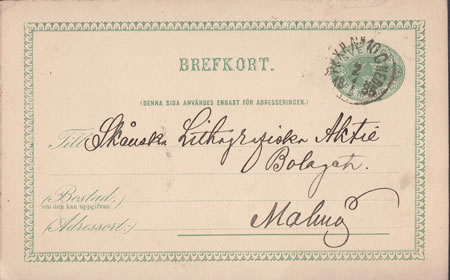 BREFKORT.
(DENNA SIDA ANVÄNDES ENDAST FÖR ADRESSERINGEN.)
Till Skånska Lithografiska Aktie
Bolaget.
(Bostad:)
om den kan uppgifvas
(Adressort:) Malmö